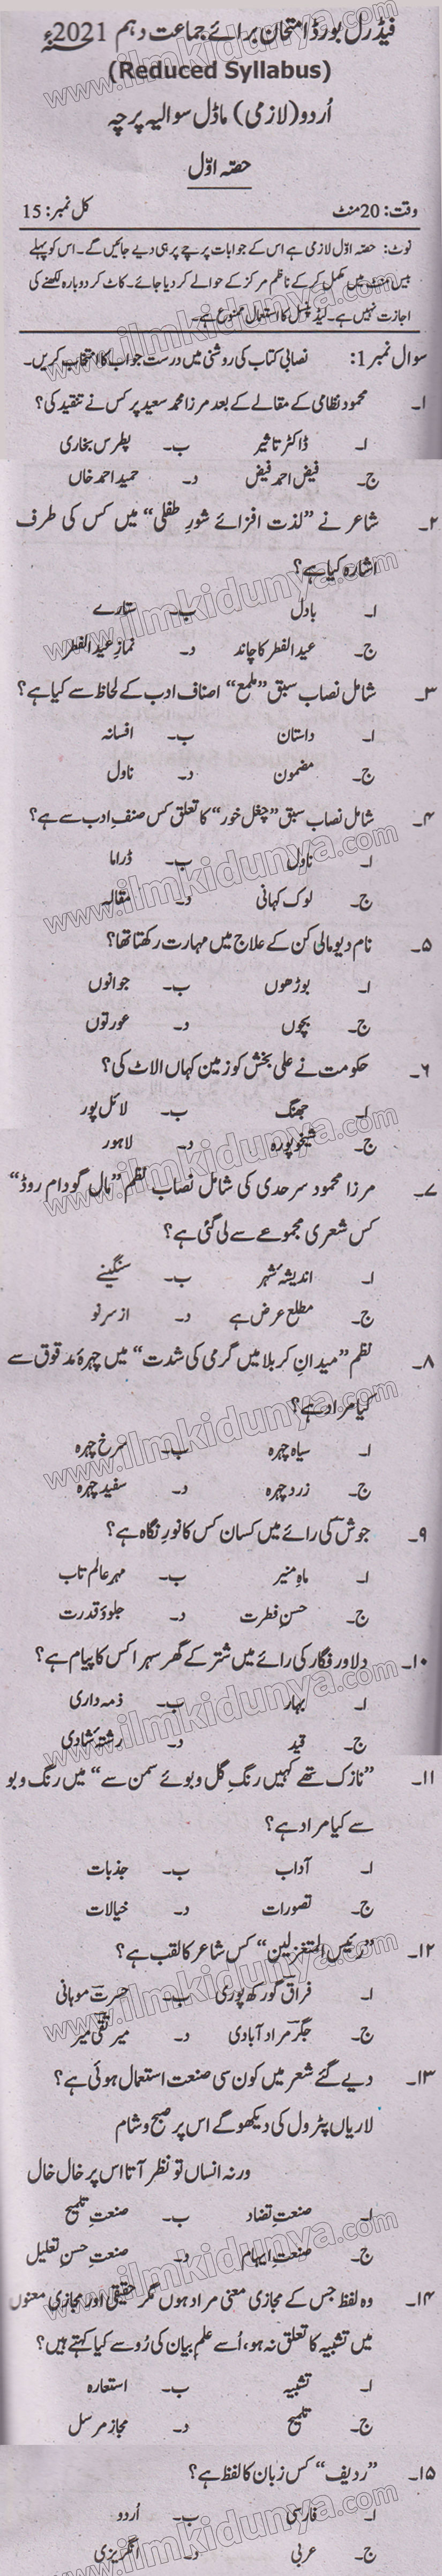 فیڈرل بورڈ امتحان برائے جماعت دہم 2021ء
(Reduced Syllabus)
اُردو (لازمی) ماڈل سوالیہ پرچہ
حصہ اوّل
وقت: 20 منٹ کل نمبر: 15
نوٹ: حصہ اوّل لازمی ہے اس کے جوابات پرچے پر ہی دیے جائیں گے۔ اس کو پہلے
بیس منٹ میں مکمل کر کے ناظم مرکز کے حوالے کر دیا جائے۔ کاٹ کر دوبارہ لکھنے کی
اجازت نہیں ہے۔ لیڈ پنسل کا استعمال ممنوع ہے۔
سوال نمبر 1: نصابی کتاب کی روشنی میں درست جواب کا انتخاب کریں۔
۱۔ محمود نظامی کے مقالے کے بعد مرزا محمد سعید پر کس نے تنقید کی؟
ا۔ ڈاکٹر تاثیر ب۔ پطرس بخاری
ج۔ فیض احمد فیض د۔ حمید احمد خاں
۲۔ شاعر نے ”لذت افزائے شورِ طفلی“ میں کس کی طرف
اشارہ کیا ہے؟
ا۔ بادل ب۔ ستارے
ج۔ عید الفطر کا چاند د۔ نمازِ عید الفطر
۳۔ شامل نصاب سبق ”ملمع“ اصناف ادب کے لحاظ سے کیا ہے؟
ا۔ داستان ب۔ افسانہ
ج۔ مضمون د۔ ناول
۴۔ شامل نصاب سبق ”چغل خور“ کا تعلق کس صنفِ ادب سے ہے؟
ا۔ ناول ب۔ ڈراما
ج۔ لوک کہانی د۔ مقالہ
۵۔ نام دیو مالی کن کے علاج میں مہارت رکھتا تھا؟
ا۔ بوڑھوں ب۔ جوانوں
ج۔ بچوں د۔ عورتوں
۶۔ حکومت نے علی بخش کو زمین کہاں الاٹ کی؟
ا۔ جھنگ ب۔ لائل پور
ج۔ شیخوپورہ د۔ لاہور
۷۔ مرزا محمود سرحدی کی شامل نصاب نظم ”مال گودام روڈ“
کس شعری مجموعے سے لی گئی ہے؟
ا۔ اندیشۂ شہر ب۔ سنگینے
ج۔ مطلع عرض ہے د۔ از سر نو
۸۔ نظم ”میدانِ کربلا میں گرمی کی شدت“ میں چہرۂ مدقوق سے
کیا مراد ہے؟
ا۔ سیاہ چہرہ ب۔ سرخ چہرہ
ج۔ زرد چہرہ د۔ سفید چہرہ
۹۔ جوشؔ کی رائے میں کسان کس کا نورِ نگاہ ہے؟
ا۔ ماہِ منیر ب۔ مہرِ عالم تاب
ج۔ حسنِ فطرت د۔ جلوۂ قدرت
۱۰۔ دلاور فگار کی رائے میں شتر کے گھر سہرا کس کا پیام ہے؟
ا۔ بہار ب۔ ذمہ داری
ج۔ قید د۔ رشتۂ شادی
۱۱۔ ”نازک تھے کہیں رنگِ گل و بوئے سمن سے“ میں رنگ و بو
سے کیا مراد ہے؟
ا۔ آداب ب۔ جذبات
ج۔ تصورات د۔ خیالات
۱۲۔ ”رئیس المتغزلین“ کس شاعر کا لقب ہے؟
ا۔ فراقؔ گورکھ پوری ب۔ حسرتؔ موہانی
ج۔ جگرؔ مراد آبادی د۔ میر تقی میرؔ
۱۳۔ دیے گئے شعر میں کون سی صنعت استعمال ہوئی ہے؟
لاریاں پٹرول کی دیکھو گے اس پر صبح و شام
ورنہ انساں تو نظر آتا اس پر خال خال
ا۔ صنعتِ تضاد ب۔ صنعتِ تلمیح
ج۔ صنعتِ ایہام د۔ صنعتِ حسنِ تعلیل
۱۴۔ وہ لفظ جس کے مجازی معنی مراد ہوں مگر حقیقی اور مجازی معنوں
میں تشبیہ کا تعلق نہ ہو، اُسے علم بیان کی رُو سے کیا کہتے ہیں؟
ا۔ تشبیہ ب۔ استعارہ
ج۔ تلمیح د۔ مجاز مرسل
۱۵۔ ”ردیف“ کس زبان کا لفظ ہے؟
ا۔ فارسی ب۔ اُردو
ج۔ عربی د۔ انگریزی
www.ilmkidunya.com